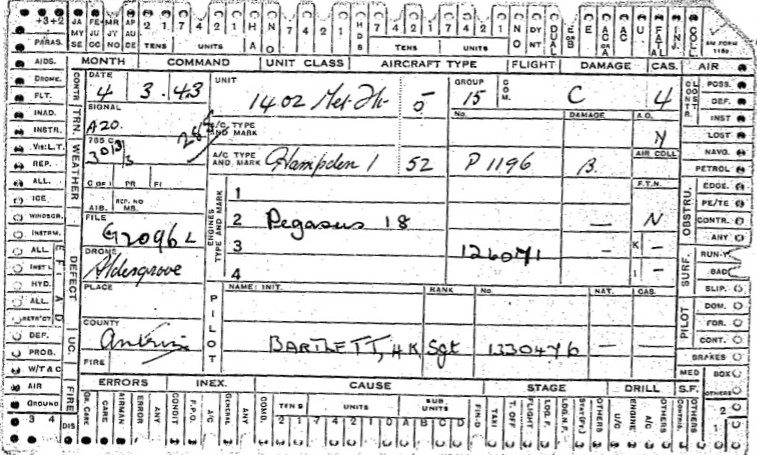 +3+2 JA FE MR AP 2 1 7 4 2 1 H N 7 4 2 1 H 7 4 2 1 7 4 2 1 N DY DUAL E E AC AC U FATAL INJ. COLL.
PARAS. MY SE JU OC JY NO AU DE TENS UNITS A O D S TENS UNITS O NT OR B OR A AM FORM 1180
AIDS. MONTH COMMAND UNIT CLASS AIRCRAFT TYPE FLIGHT DAMAGE CAS. AIR
DROME. CONTR. DATE UNIT GROUP COM. CONTR. LOST POSS.
FLT. 4 3.43 1402 Met. Flt. - 15 C 4 DEF.
INAD. TRN. SIGNAL 5 No. DAMAGE A.O. INST
INSTR. A20. A/C TYPE AND MARK Y LOST
VIS:L.T. WEATHER 765 C 30/3/3 AIR COLL NAVG.
REP. A/C TYPE AND MARK Hampden 1 52 P1196 B. PETROL
ALL. C OF I PR FI F.T.N. OBSTRU. EDGE.
ICE A.I.B. REP. NO MB. ENGINES TYPE AND MARK 1 PE/TE
WINDSCR. FILE 2 Pegasus 18 — N CONTR.
INSTRM. G2096 L 3 126071 - K - ANY
ALL. DEFECT DROME SURF. RUN-Y
INST L Aldergrove 4 I - BAD
HYD. PLACE PILOT NAME: INIT. RANK No. NAT. CAS. SLIP.
ALL. DOM.
RETR'CT COUNTY PILOT FOR.
DEF. UC. Antrim BARTLETT, H K Sgt 1330476 — - CONT.
PROB. FIRE BRAKES
W/T & C ERRORS INEX. CAUSE STAGE DRILL MED BOX
AIR FIRE OK. CARE CARE AIRMAN ERROR ANY CONDIT F.P.O. A/C GENERAL ANY COMD. TENS UNITS SUB UNITS FIN-O TAXI T. OFF FLIGHT LDG.F. LDG.N.F. STAT(FY.) OTHERS U/C ENGINE A/C OTHERS CONTROL S.F. OTHERS
GROUND 2
3 4 DIS 7 4 2 1 7 4 2 1 0 A B C D 1